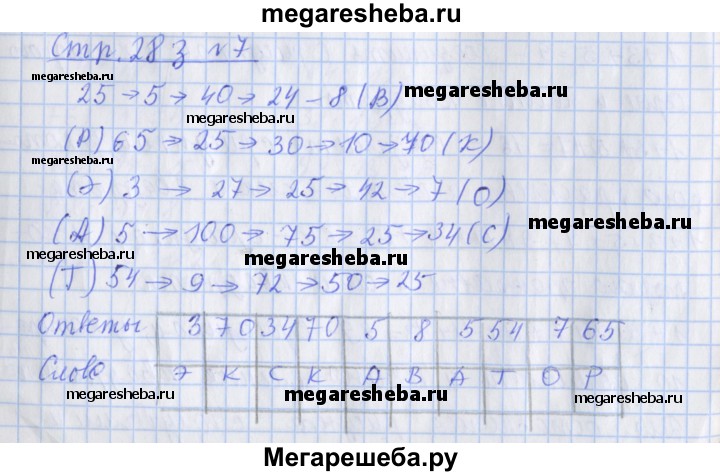 megaresheba.ru
Стр. 28 з №7
megaresheba.ru
25 → 5 → 40 → 24 - 8 (В) megaresheba.ru
megaresheba.ru
(Р) 65 → 25 → 30 → 10 → 70 (К)
megaresheba.ru
(Э) 3 → 27 → 25 → 42 → 7 (О)
megaresheba.ru
(А) 5 → 100 → 75 → 25 → 34 (С)
megaresheba.ru megaresheba.ru
(Т) 54 → 9 → 72 → 50 → 25
Ответы 3 70 34 70 5 8 5 54 7 65
Слово Э К С К А В А Т О Р
megaresheba.ru megaresheba.ru megaresheba.ru
Мегарешеба.ру